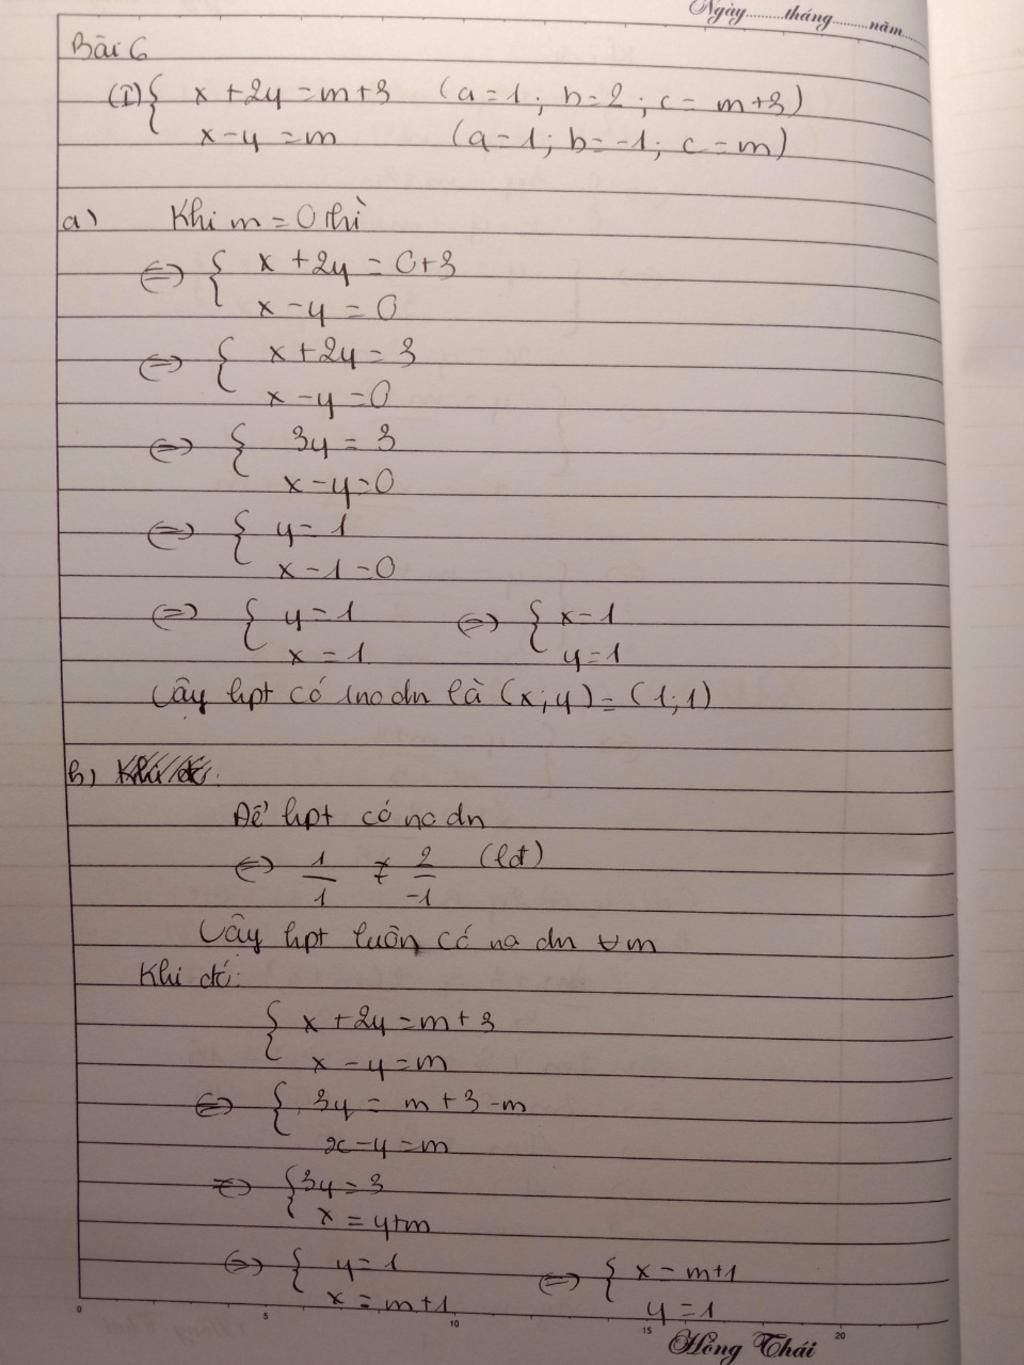 Ngày.........tháng.........năm.....
Bài 6
(I) { x + 2y = m+3 (a = 1 ; b = 2 ; c = m+3)
x - y = m (a = 1 ; b = -1 ; c = m)
a) Khi m = 0 thì
<=> { x + 2y = 0+3
x - y = 0
<=> { x + 2y = 3
x - y = 0
<=> { 3y = 3
x - y = 0
<=> { y = 1
x - 1 = 0
<=> { y = 1 <=> { x = 1
x = 1 y = 1
Vậy hpt có no dn là (x; y) = (1; 1)
b)
Để hpt có no dn
<=> 1/1 ≠ 2/-1 (lđ)
Vậy hpt luôn có no dn ∀m
Khi đó:
{ x + 2y = m + 3
x - y = m
<=> { 3y = m + 3 - m
x - y = m
<=> { 3y = 3
x = y+m
<=> { y = 1 <=> { x = m+1
x = m+1 y = 1
0 5 10 15 20
Hồng Thái